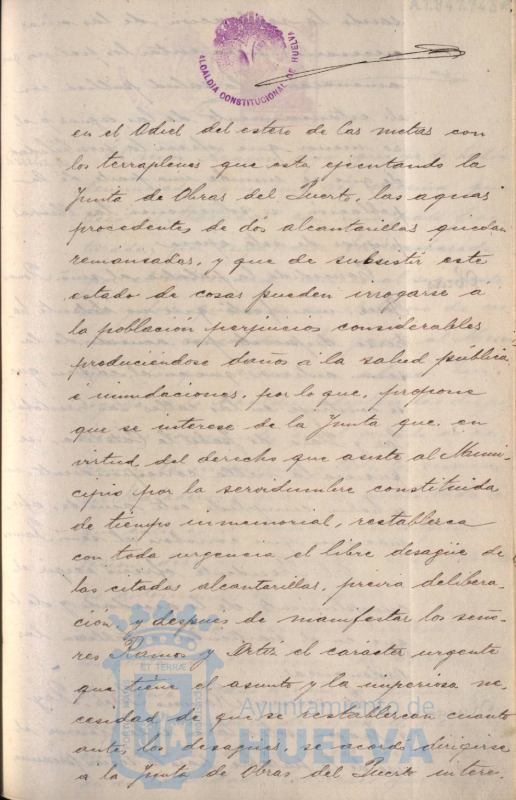 ALCALDÍA CONSTITUCIONAL DE HUELVA
en el Odiel del estero de las metas con
los terraplenes que esta ejecutando la
Junta de Obras del Puerto, las aguas
procedentes de dos alcantarillas quedan
remansadas, y que de subsistir este
estado de cosas pueden irrogarse á
la población perjuicios considerables
produciéndose daños á la salud pública
é inundaciones, por lo que, propone
que se interese de la Junta que, en
virtud del derecho que asiste al Muni-
cipio por la servidumbre constituida
de tiempo inmemorial, restablezca
con toda urgencia el libre desagüe de
las citadas alcantarillas, previa delibera-
ción, y después de manifestar los seño-
res Ramos y Ortiz el carácter urgente
que tiene el asunto y la imperiosa ne-
cesidad de que se restablezcan cuanto
ante, los desagües, se acordó dirigirse
á la Junta de Obras del Puerto intere-
ET TERRAE
Ayuntamiento de
HUELVA